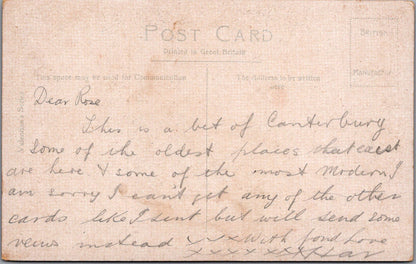 POST CARD
Printed in Great Britain
BRITISH
Manufacture
This space may be used for Communication
The Address to be written
here
Dear Rose
This is a bit of Canterbury
some of the oldest places that
are here & some of the most Modern I
am sorry I cant get any of the other
cards like I sent but will send some
views instead xxx With fond Love
xxxxxxx